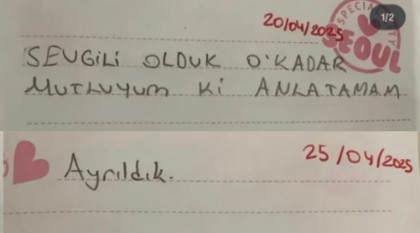 20/04/2025
1/2
SPECIAL
SEOUL
SEVGiLi OLDUK O'KADAR
MUTLUYUM Ki ANLATAMAM
25/04/2025
Ayrıldık.